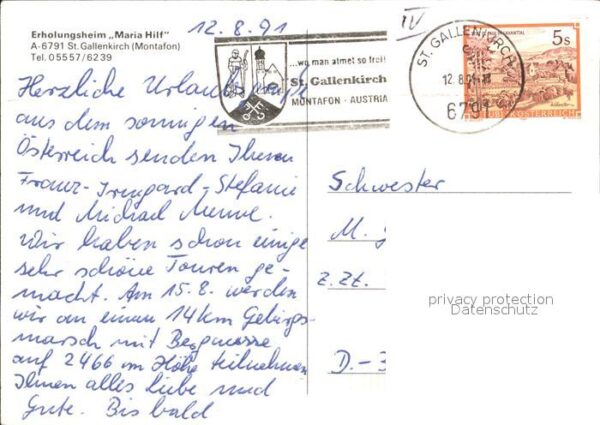 Erholungsheim „Maria Hilf"
A-6791 St. Gallenkirch (Montafon)
Tel. 05557/6239
12.8.91
IV
...wo man atmet so frei!
St. Gallenkirch
MONTAFON · AUSTRIA
ST. GALLENKIRCH
12.8.91-18
6791
5s
REPUBLIK ÖSTERREICH
Herzliche Urlaubsgrüße
aus dem sonnigen
Österreich senden Ihnen
Franz-Irmgard-Stefanie
und Michael
Wir haben schon einige
sehr schöne Touren ge-
macht. Am 15.8. werden
wir an einem 14km Gebirgs-
marsch mit Bergmesse
auf 2466 m Höhe teilnehmen
Ihnen alles liebe und
Gute. Bis bald
Schwester
M.
z.Zt.
D.-3
privacy protection
Datenschutz